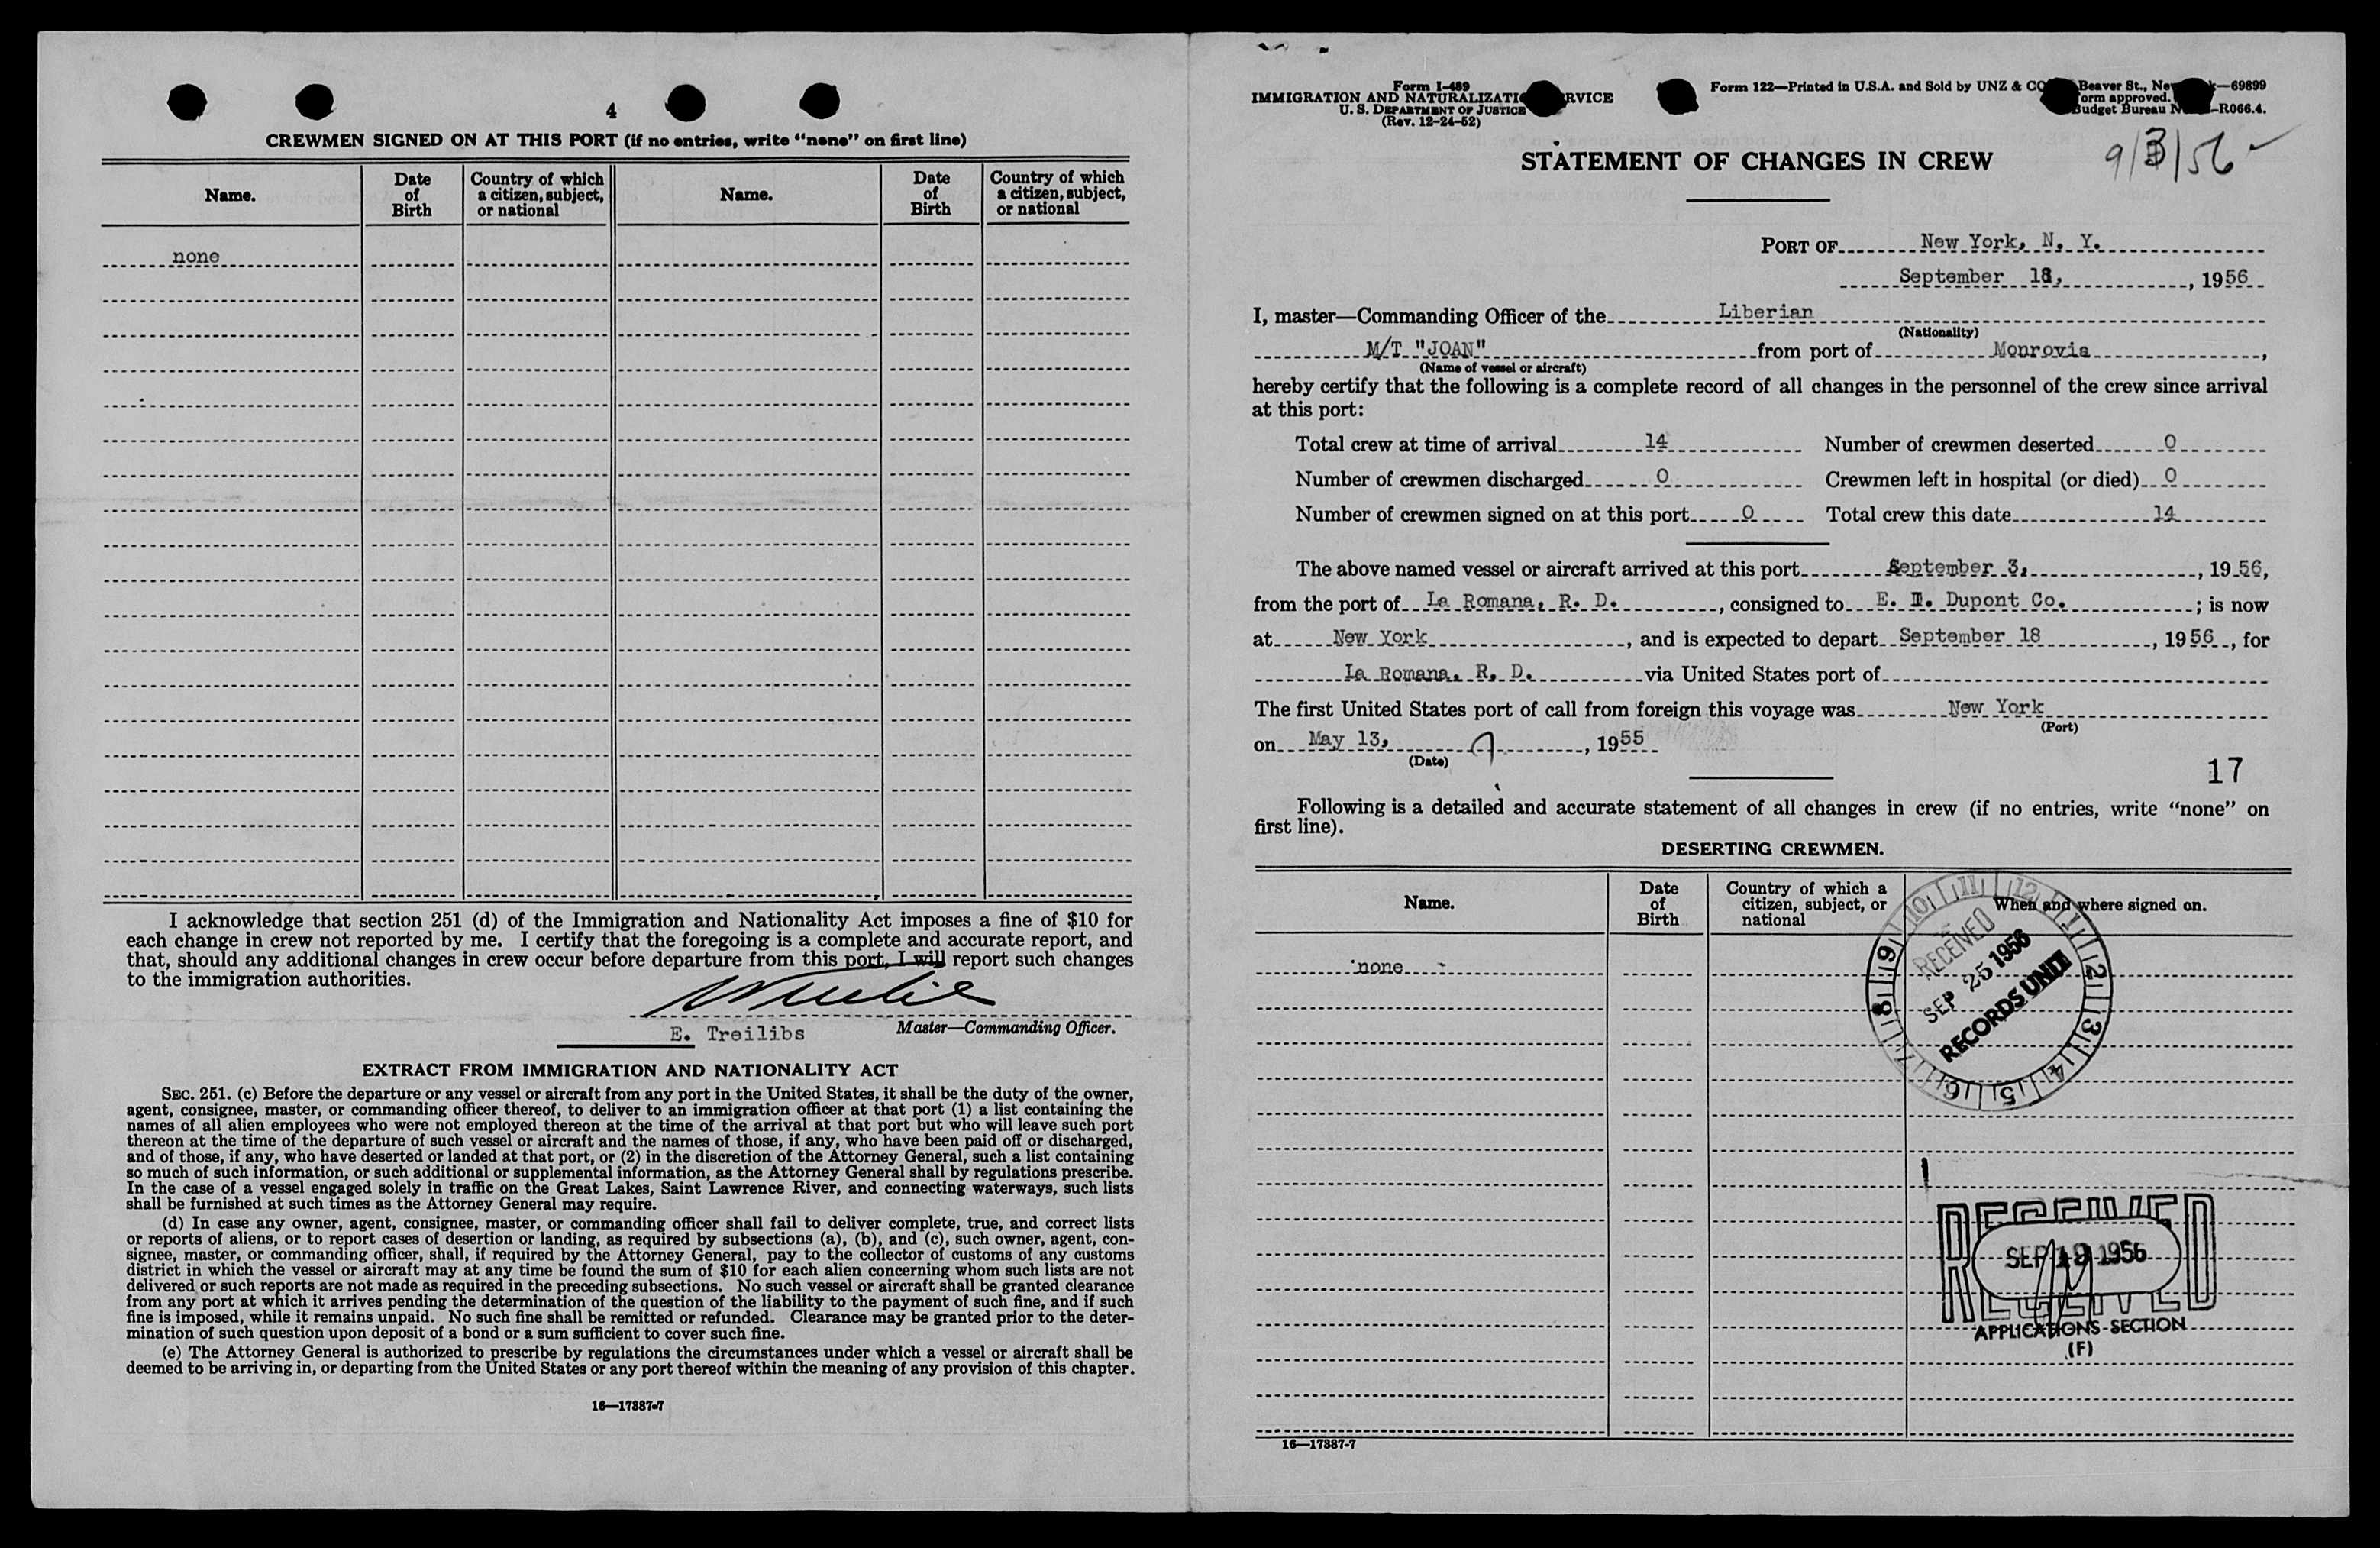 4
CREWMEN SIGNED ON AT THIS PORT (if no entries, write “none” on first line)
Name. Date of Birth Country of which a citizen, subject, or national Name. Date of Birth Country of which a citizen, subject, or national
none
I acknowledge that section 251 (d) of the Immigration and Nationality Act imposes a fine of $10 for
each change in crew not reported by me. I certify that the foregoing is a complete and accurate report, and
that, should any additional changes in crew occur before departure from this port, I will report such changes
to the immigration authorities.
E. Treilibs Master—Commanding Officer.
EXTRACT FROM IMMIGRATION AND NATIONALITY ACT
SEC. 251. (c) Before the departure or any vessel or aircraft from any port in the United States, it shall be the duty of the owner,
agent, consignee, master, or commanding officer thereof, to deliver to an immigration officer at that port (1) a list containing the
names of all alien employees who were not employed thereon at the time of the arrival at that port but who will leave such port
thereon at the time of the departure of such vessel or aircraft and the names of those, if any, who have been paid off or discharged,
and of those, if any, who have deserted or landed at that port, or (2) in the discretion of the Attorney General, such a list containing
so much of such information, or such additional or supplemental information, as the Attorney General shall by regulations prescribe.
In the case of a vessel engaged solely in traffic on the Great Lakes, Saint Lawrence River, and connecting waterways, such lists
shall be furnished at such times as the Attorney General may require.
(d) In case any owner, agent, consignee, master, or commanding officer shall fail to deliver complete, true, and correct lists
or reports of aliens, or to report cases of desertion or landing, as required by subsections (a), (b), and (c), such owner, agent, con-
signee, master, or commanding officer, shall, if required by the Attorney General, pay to the collector of customs of any customs
district in which the vessel or aircraft may at any time be found the sum of $10 for each alien concerning whom such lists are not
delivered or such reports are not made as required in the preceding subsections. No such vessel or aircraft shall be granted clearance
from any port at which it arrives pending the determination of the question of the liability to the payment of such fine, and if such
fine is imposed, while it remains unpaid. No such fine shall be remitted or refunded. Clearance may be granted prior to the deter-
mination of such question upon deposit of a bond or a sum sufficient to cover such fine.
(e) The Attorney General is authorized to prescribe by regulations the circumstances under which a vessel or aircraft shall be
deemed to be arriving in, or departing from the United States or any port thereof within the meaning of any provision of this chapter.
16—17887-7
Form I-489
IMMIGRATION AND NATURALIZATI RVICE
U. S. DEPARTMENT OF JUSTICE
(Rev. 12-24-52)
Form 122—Printed in U.S.A. and Sold by UNZ & CO Beaver St., New —69899
orm approved.
udget Bureau N -R066.4.
9/3/56
STATEMENT OF CHANGES IN CREW
PORT OF New York, N. Y.
September 18, , 1956
I, master—Commanding Officer of the Liberian
(Nationality)
M/T "JOAN" from port of Monrovia ,
(Name of vessel or aircraft)
hereby certify that the following is a complete record of all changes in the personnel of the crew since arrival
at this port:
Total crew at time of arrival 14 Number of crewmen deserted 0
Number of crewmen discharged 0 Crewmen left in hospital (or died) 0
Number of crewmen signed on at this port 0 Total crew this date 14
The above named vessel or aircraft arrived at this port September 3, , 1956,
from the port of La Romana, R. D. , consigned to E. I. Dupont Co. ; is now
at New York , and is expected to depart September 18 , 1956 , for
La Romana, R. D. via United States port of
The first United States port of call from foreign this voyage was New York
(Port)
on May 13, , 1955
(Date)
17
Following is a detailed and accurate statement of all changes in crew (if no entries, write “none” on
first line).
DESERTING CREWMEN.
Name. Date of Birth Country of which a citizen, subject, or national When and where signed on.
none
10 11 12 1 2 3 4 5 6 7 8 9
RECEIVED
SEP 25 1956
RECORDS UNIT
RECEIVED
SEP 19 1956
RECEIVED
APPLICATIONS SECTION
(F)
16—17887-7